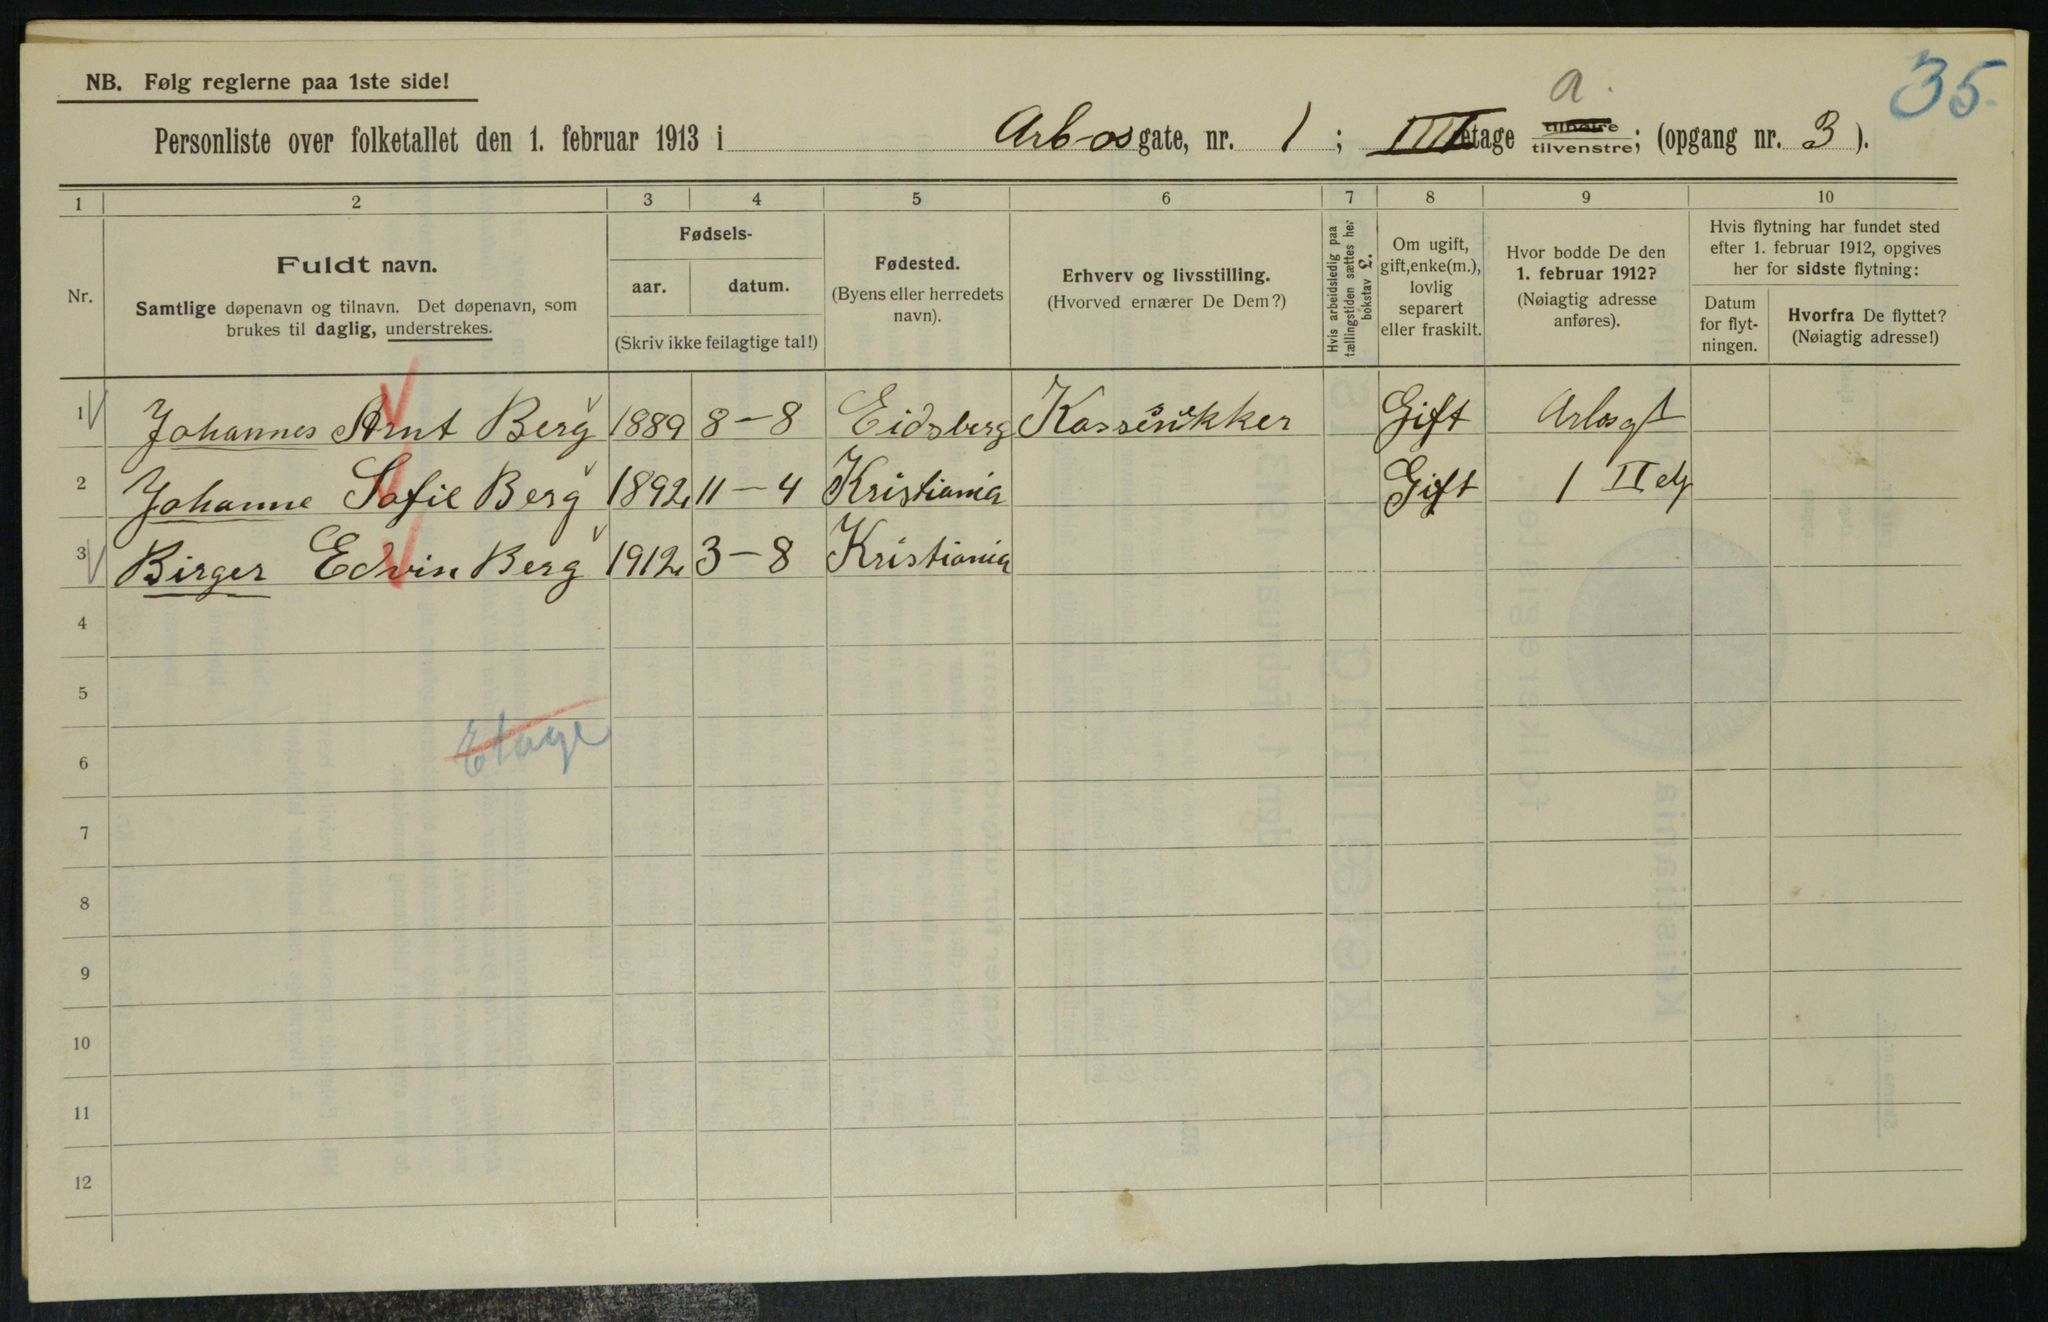 35.
NB. Følg reglerne paa 1ste side!
a.
Personliste over folketallet den 1. februar 1913 i Arbosgate, nr. 1; III etage tilhøire tilvenstre; (opgang nr. 3).
1 2 3 4 5 6 7 8 9 10
Nr.
Fuldt navn.
Samtlige døpenavn og tilnavn. Det døpenavn, som
brukes til daglig, understrekes.
Fødsels-
aar. datum.
(Skriv ikke feilagtige tal!)
Fødested.
(Byens eller herredets
navn).
Erhverv og livsstilling.
(Hvorved ernærer De Dem?)
Hvis arbeidsledig paa
tællingstiden sættes her
bokstav L.
Om ugift,
gift, enke(m.),
lovlig
separert
eller fraskilt.
Hvor bodde De den
1. februar 1912?
(Nøiagtig adresse
anføres).
Hvis flytning har fundet sted
efter 1. februar 1912, opgives
her for sidste flytning:
Datum
for flyt-
ningen.
Hvorfra De flyttet?
(Nøiagtig adresse!)
1 Johannes Arnt Berg 1889 8-8 Eidsberg Gift Arbosgt
2 Johanne Sofie Berg 1892 11-4 Kristiania Gift 1 II etg
3 Birger Edvin Berg 1912 3-8 Kristiania
4
5
Etage
6
7
8
9
10
11
12